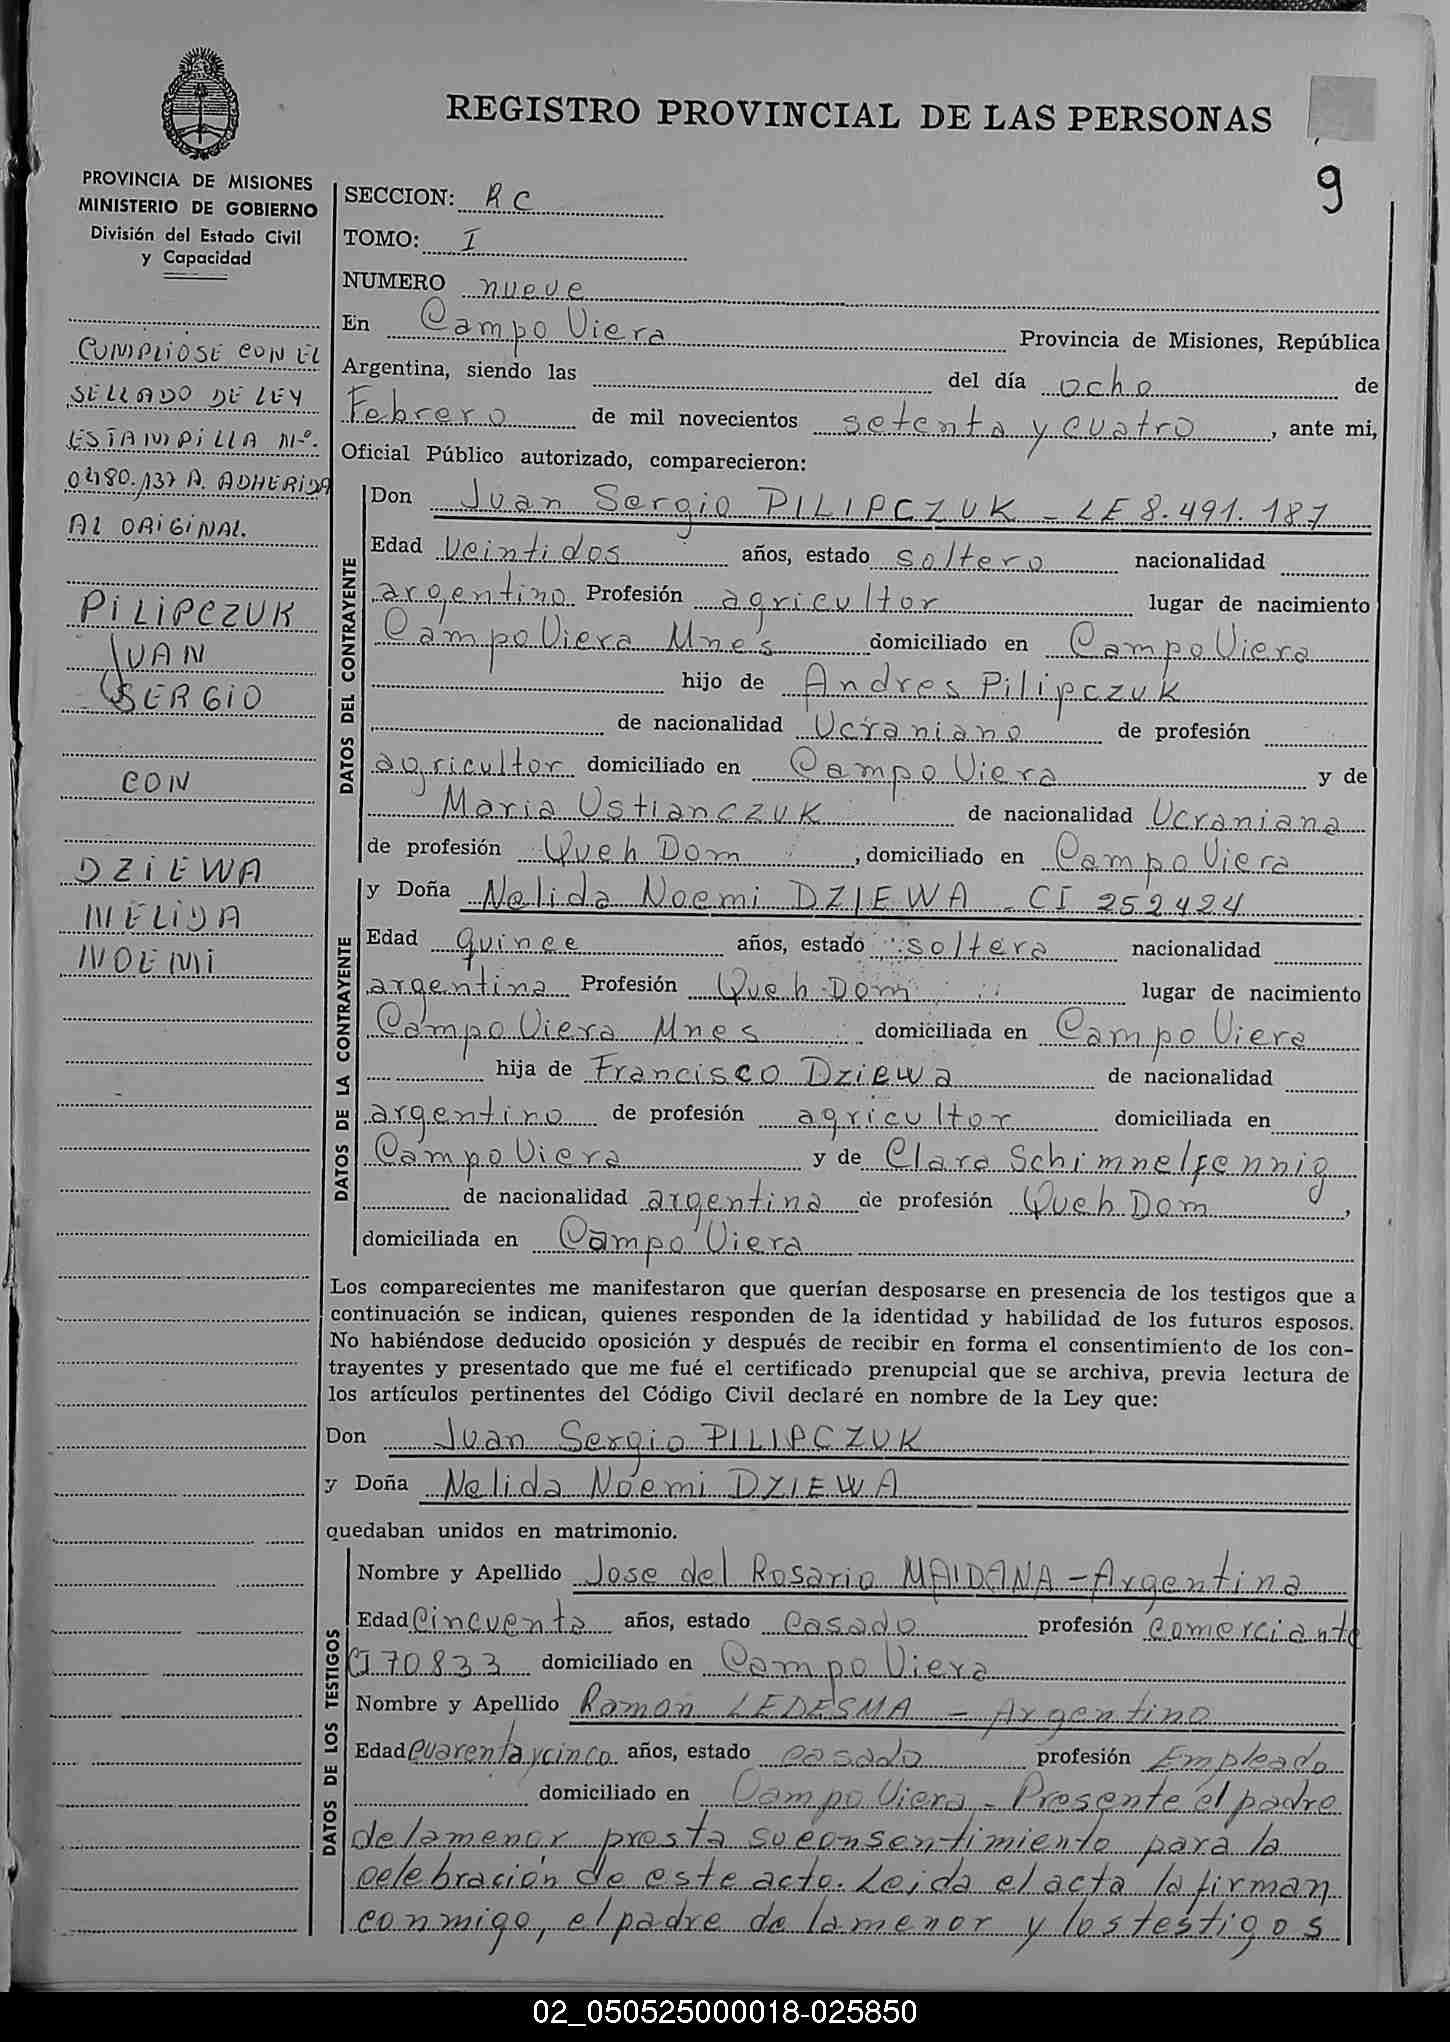 REGISTRO PROVINCIAL DE LAS PERSONAS
9
PROVINCIA DE MISIONES
MINISTERIO DE GOBIERNO
División del Estado Civil
y Capacidad
CUMPLIOSE CON EL
SELLADO DE LEY
ESTAMPILLA Nº.
0480.137 A. ADHERIDA
AL ORIGINAL.
PILIPCZUK
JUAN
SERGIO
CON
DZIEWA
NELIDA
NOEMI
SECCION: RC
TOMO: I
NUMERO nueve
En Campo Viera Provincia de Misiones, República
Argentina, siendo las del día ocho de
Febrero de mil novecientos setenta y cuatro, ante mi,
Oficial Público autorizado, comparecieron:
DATOS DEL CONTRAYENTE
Don Juan Sergio PILIPCZUK - LE 8.491.187
Edad veintidos años, estado soltero nacionalidad
argentino Profesión agricultor lugar de nacimiento
Campo Viera Mnes domiciliado en Campo Viera
hijo de Andres Pilipczuk
de nacionalidad Ucraniano de profesión
agricultor domiciliado en Campo Viera y de
Maria Ustianczuk de nacionalidad Ucraniana
de profesión Queh Dom, domiciliado en Campo Viera
DATOS DE LA CONTRAYENTE
y Doña Nelida Noemi DZIEWA - CI 252424
Edad quince años, estado soltera nacionalidad
argentina Profesión Queh Dom lugar de nacimiento
Campo Viera Mnes domiciliada en Campo Viera
hija de Francisco Dziewa de nacionalidad
argentino de profesión agricultor domiciliada en
Campo Viera y de Clara Schimnelfennig
de nacionalidad argentina de profesión Queh Dom,
domiciliada en Campo Viera
Los comparecientes me manifestaron que querían desposarse en presencia de los testigos que a
continuación se indican, quienes responden de la identidad y habilidad de los futuros esposos.
No habiéndose deducido oposición y después de recibir en forma el consentimiento de los con-
trayentes y presentado que me fué el certificado prenupcial que se archiva, previa lectura de
los artículos pertinentes del Código Civil declaré en nombre de la Ley que:
Don Juan Sergio PILIPCZUK
y Doña Nelida Noemi DZIEWA
quedaban unidos en matrimonio.
DATOS DE LOS TESTIGOS
Nombre y Apellido Jose del Rosario MAIDANA - Argentina
Edad Cincuenta años, estado casado profesión comerciante
CI 70833 domiciliado en Campo Viera
Nombre y Apellido Ramon LEDESMA - Argentino
Edad cuarenta y cinco años, estado casado profesión Empleado
domiciliado en Campo Viera - Presente el padre
de la menor presta su consentimiento para la
celebración de este acto. Leida el acta la firman
conmigo, el padre de la menor y los testigos
02_050525000018-025850